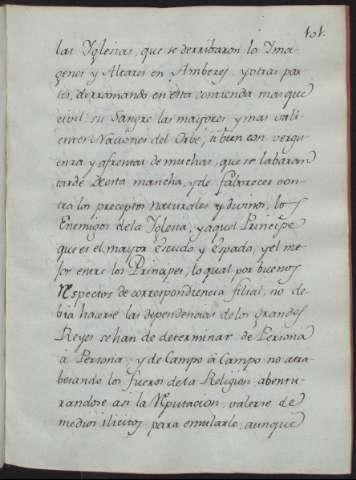 101.
las Yglesias, que se derribaron lo Yma-
genes y Altares en Amberes, y otras par-
tes, derramando en esta contienda mas que
civil su Sangre las mayores y mas vali-
entes Naciones del Orbe, si bien con vergu-
enza y afrenta de muchas, que se labaran
tarde de esta mancha, y de fabores con-
tra los preceptos naturales y divinos, los
Enemigos de la Yglesia, y aquel Principe
que es el mayor Escudo y Espada, y el me-
jor entre los Principes, lo qual por buenos
Respectos de correspondencia filial, no de-
bia hacerse las dependencias de los grandes
Reyes se han de determinar de Persona
à Persona, y de Campo à Campo no atra-
besando los fueros de la Religion, abentu-
randose asi la Reputacion, valerse de
medios ilicitos para emularle, aunque